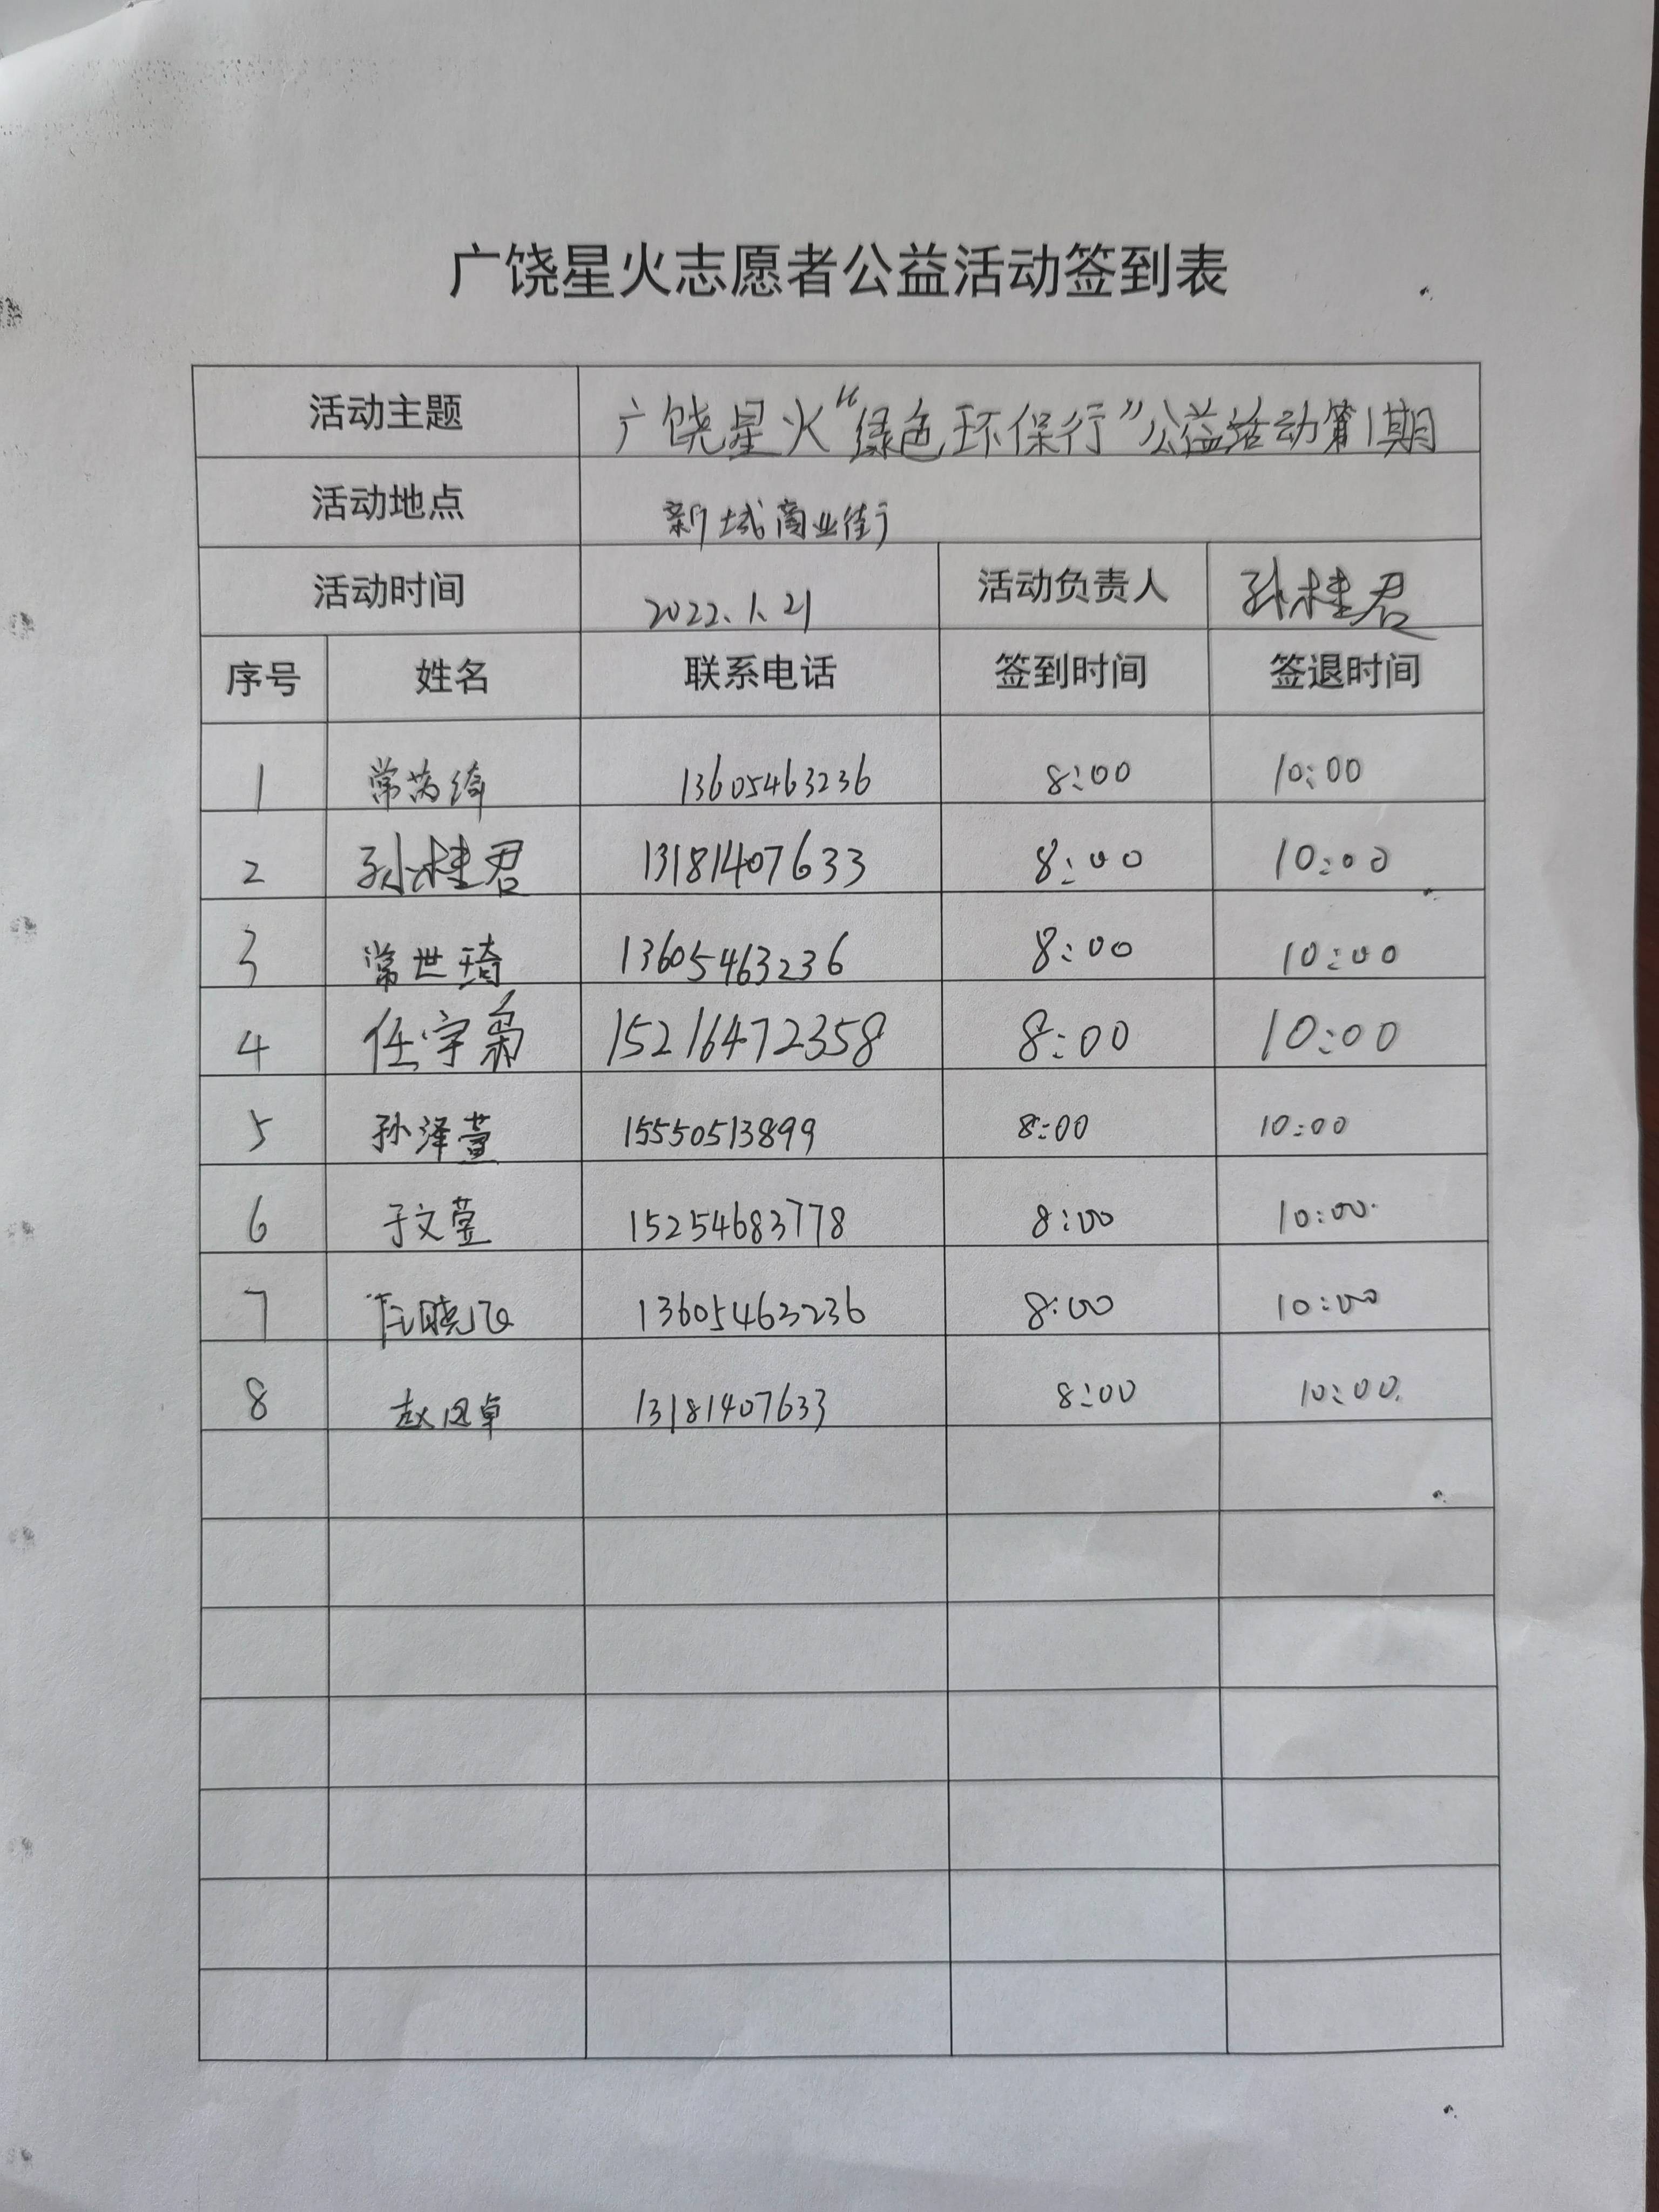 广饶星火志愿者公益活动签到表
活动主题 广饶星火“绿色环保行”公益活动第1期
活动地点 新城商业街
活动时间 2022.1.21 活动负责人 孙桂君
序号 姓名 联系电话 签到时间 签退时间
1 常芮绮 13605463236 8:00 10:00
2 孙桂君 13181407633 8:00 10:00
3 常世琦 13605463236 8:00 10:00
4 任宇 15216472358 8:00 10:00
5 孙泽萱 15550513899 8:00 10:00
6 于文莹 15254683778 8:00 10:00
7 晓飞 13605463236 8:00 10:00
8 赵凤卓 13181407633 8:00 10:00